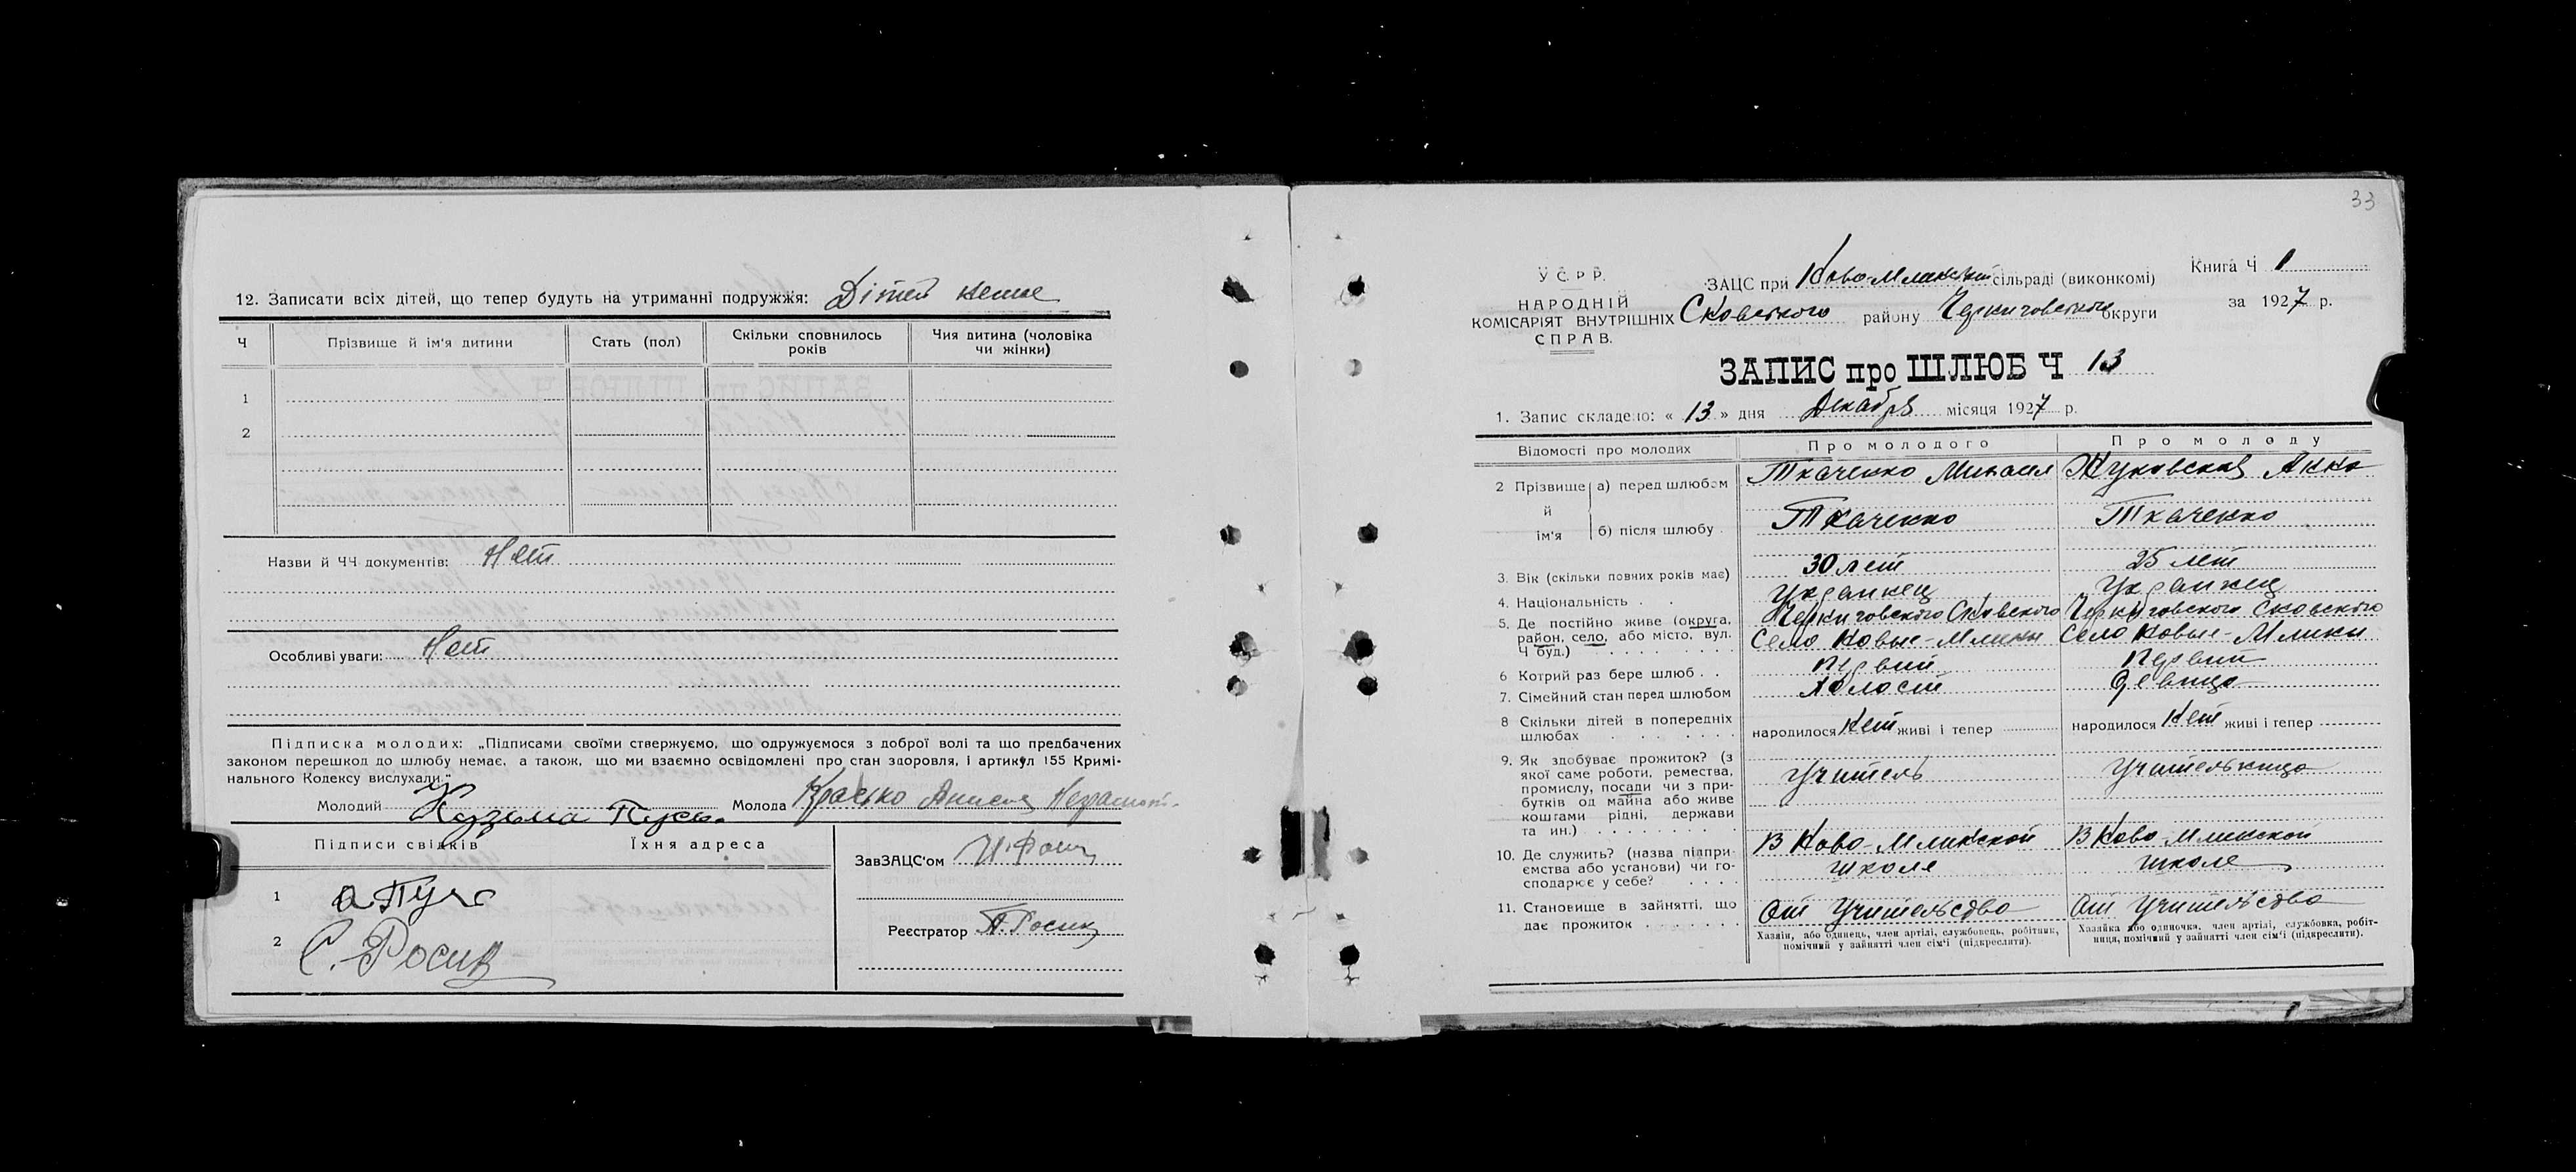 12. Записати всіх дітей, що тепер будуть на утриманні подружжя: Дітей немає
Ч
Прізвище й ім'я дитини
Стать (пол)
Скільки сповнилось
років
Чия дитина (чоловіка
чи жінки)
1
2
Назви й ЧЧ документів: Нет
Особливі уваги: Нет
Підписка молодих: „Підписами своїми стверджуємо, що одружуємося з доброї волі та що предбачених
законом перешкод до шлюбу немає, а також, що ми взаємно освідомлені про стан здоровля, і артикул 155 Кримі-
нального Кодексу вислухали."
Молодий Кузьма Молода
Підписи свідків Їхня адреса
ЗавЗАЦС'ом
1
2 С. Росик
Реєстратор
33
У С Р Р.
НАРОДНІЙ
КОМІСАРІЯТ ВНУТРІШНІХ
СПРАВ.
ЗАЦС при Ново-Млинський сільраді (виконкомі)
Сновского району Черниговского округи
Книга Ч 1
за 1927 р.
ЗАПИС про ШЛЮБ Ч 13
1. Запис складено: « 13 » дня Декабря місяця 1927 р.
Відомості про молодих
Про молодого
Про молоду
2 Прізвище й ім'я
а) перед шлюбом Ткаченко Михаил Жуковская Анна
б) після шлюбу Ткаченко Ткаченко
3. Вік (скільки повних років має) 30 лет 25 лет
4. Національність Украинец Украинец
5. Де постійно живе (округа, Черниговского Сновского Черниговского Сновского
район, село, або місто, вул. Село Новые-Млины Село Новые-Млины
Ч буд.)
6 Котрий раз бере шлюб Первий Первий
7. Сімейний стан перед шлюбом Холост Девица
8 Скільки дітей в попередніх
шлюбах народилося Нет живі і тепер народилося Нет живі і тепер
9. Як здобуває прожиток? (з
якої саме роботи, ремества, Учитель Учительница
промислу, посади чи з при-
бутків од майна або живе
коштами рідні, держави
та ин.)
10. Де служить? (назва підпри- В Ново-Млинской В Ново-Млинской
ємства або установи) чи го- школе школе
сподарює у себе?
11. Становище в зайнятті, що От Учительства От Учительства
дає прожиток
Хазяїн, або одинець, член артілі, службовець, робітник,
помічний у зайнятті член сім'ї (підкреслити).
Хазяйка або одиночка, член артілі, службовка, робіт-
ниця, помічний у зайнятті член сім'ї (підкреслити).